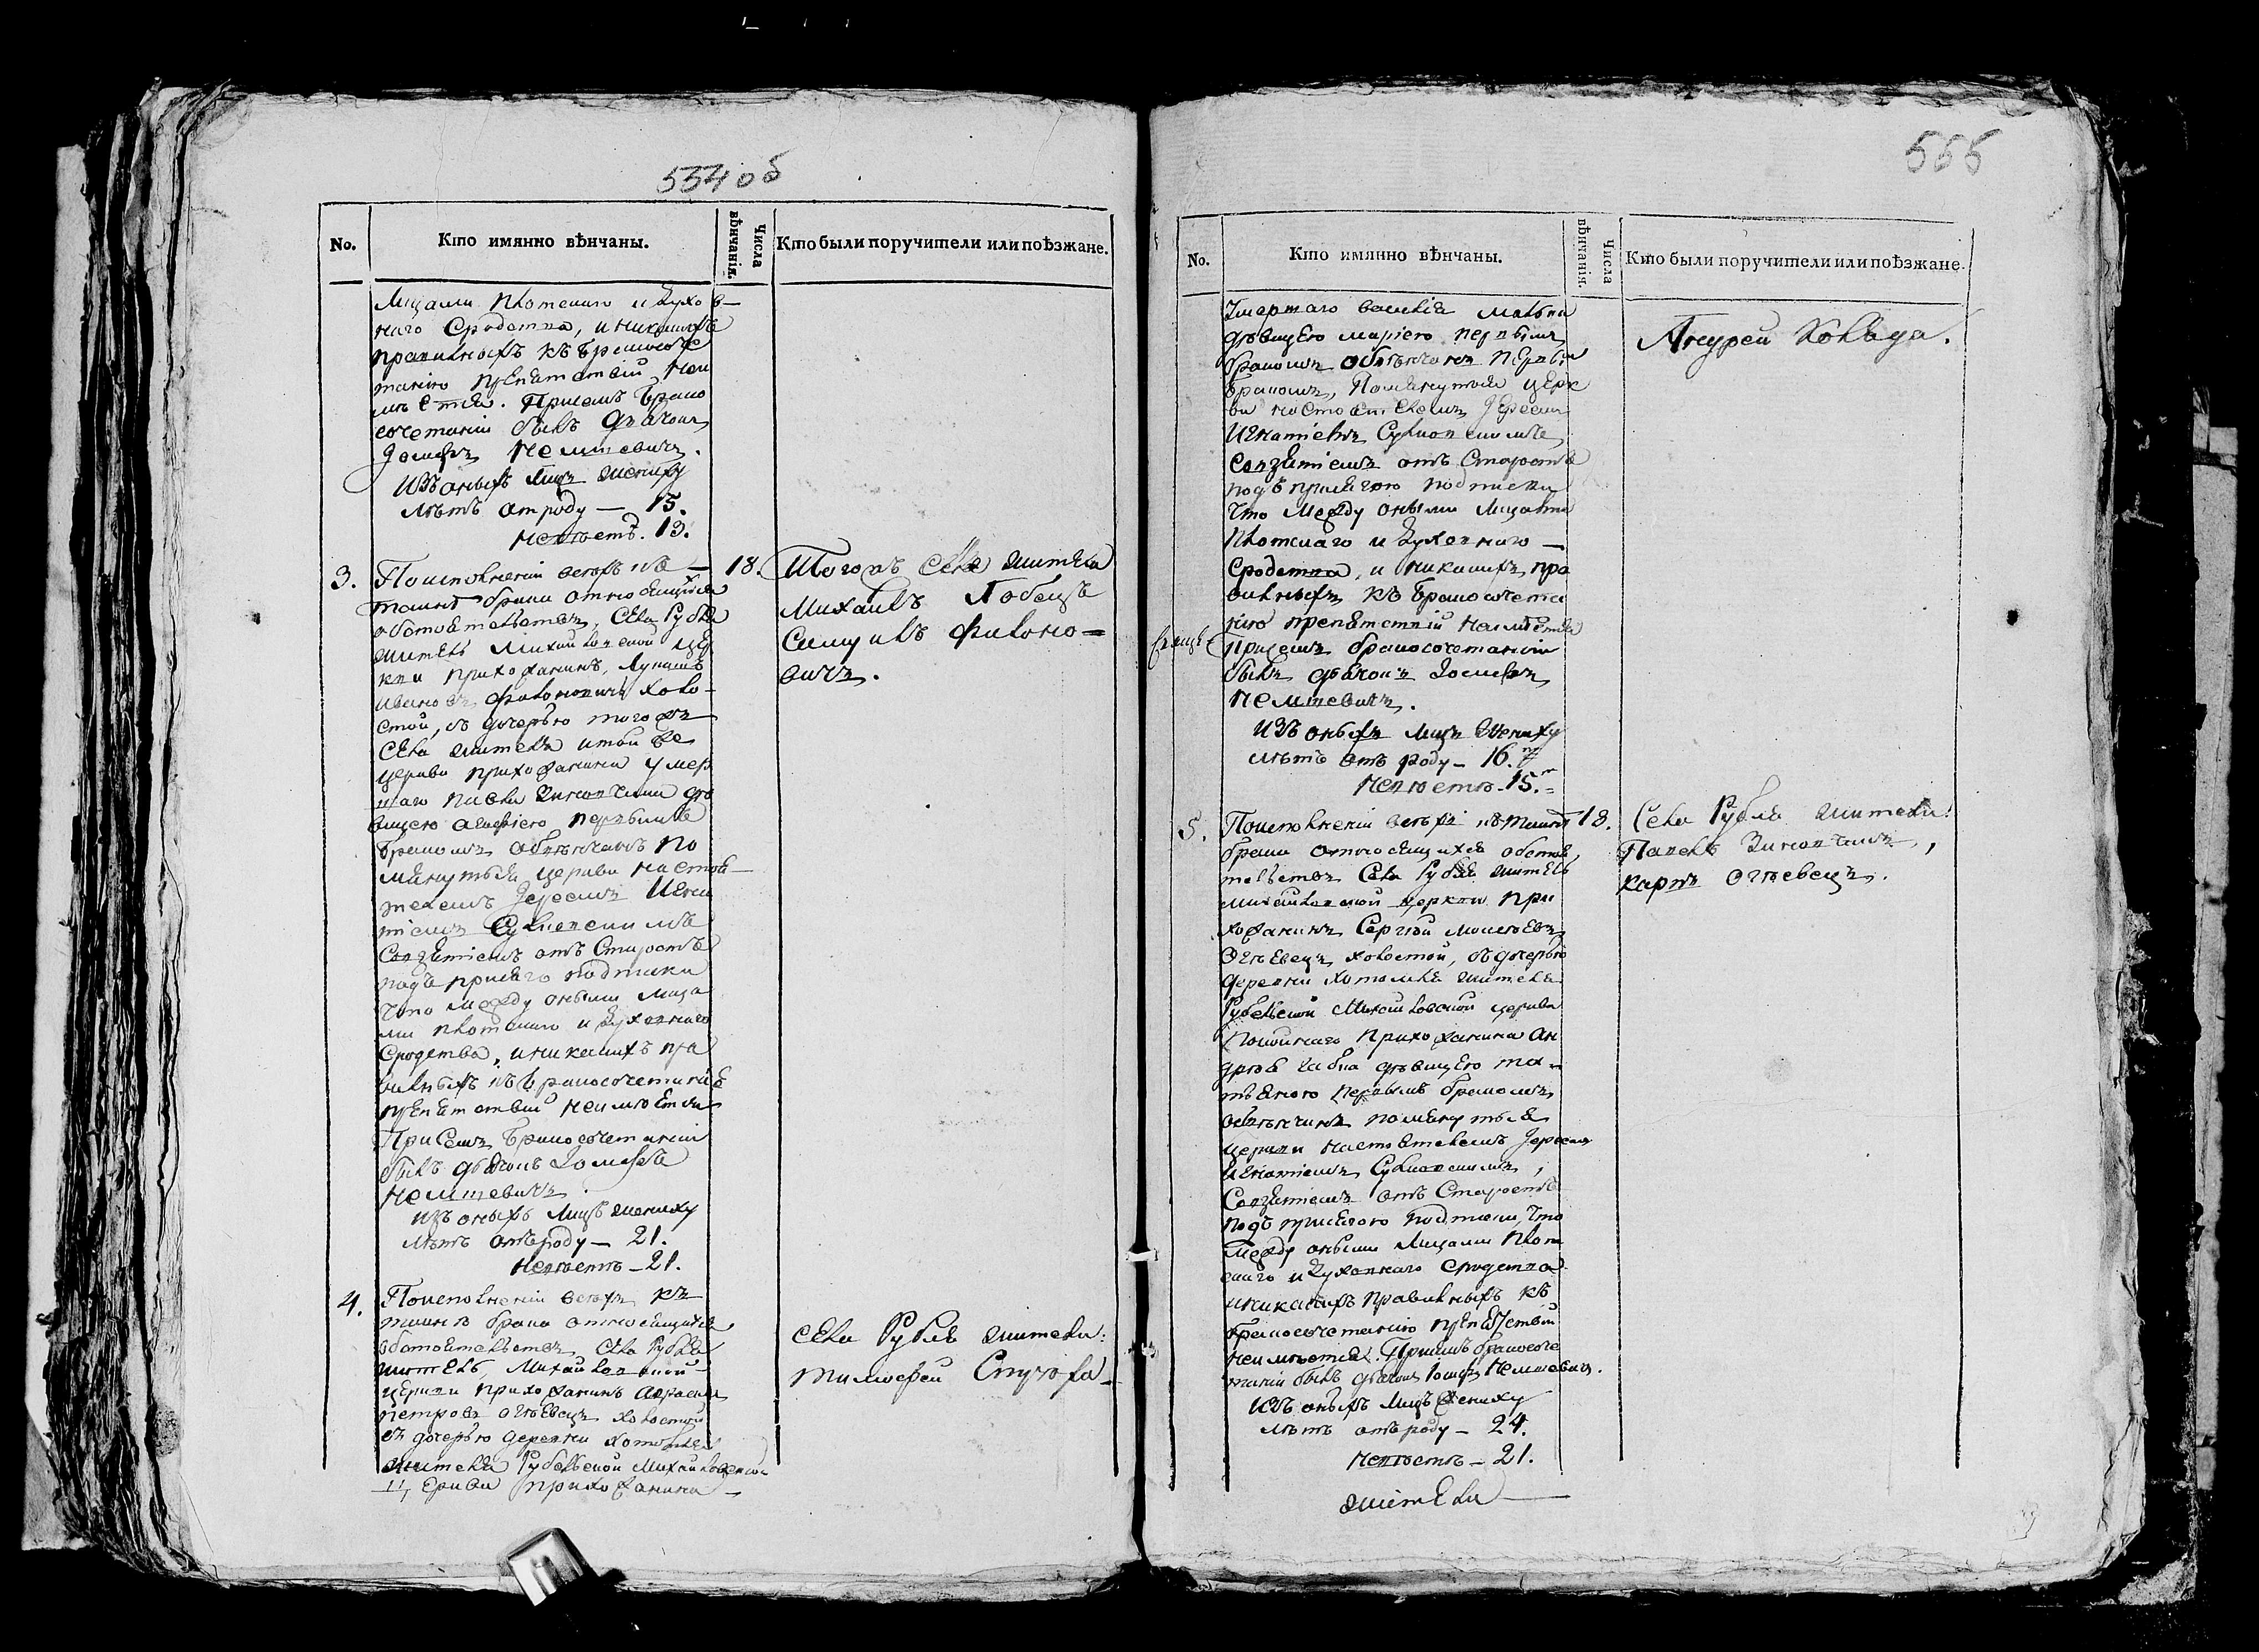 534 об
No.
Кто имянно вѣнчаны.
Числа вѣнчанія.
Кто были поручители или поѣзжане.
Лицами плотскаго и духов-
наго сродства, и никакихъ
правилныхъ къ бракосоче
танію препятствій неи
мѣется. Присемъ брако
сочетаніи былъ дьяконъ
Іосифъ Немшевичъ.
Изъ оныхъ лицъ жениху
лѣтъ отроду — 15.
Невѣстѣ. 13.
3.
Поисполненіи всѣхъ къ —
таинѣ брака относящихся
обстоятельствъ, села Рубля
житель Михайловской цер
кви прихожанинъ,
Ивановъ Филоновичъ холо-
стой, съ дочерью тогожъ
села жителя и той же
церкви прихожанина умер
шаго дѣ
вицею первымъ
бракомъ обвѣнчанъ по
мянутыя церкви настоя-
телемъ Іереемъ Игна
тіемъ
Совзятіемъ отъ старостъ
подъ присягою подписки
что между оными лица
ми плотскаго и духовнаго
сродства, и никакихъ пра
вилныхъ къ бракосочетанію
препятствій неимѣется
Присемъ бракосочетаніи
былъ дьяконъ Іосифъ
Немшевичъ.
Изъ оныхъ лицъ жениху
лѣтъ отъроду — 21.
Невѣстѣ — 21.
18.
Тогожъ села жители
Михаилъ
Филоно-
вичъ.
4.
Поисполненіи всѣхъ къ
таинѣ брака относящихся
обстоятельствъ, села Рубля
житель, Михайловской
церкви прихожанинъ
Петровъ Огіевецъ холостой
съ дочерью деревни Хотомля
жителя Рубельской Михайловской
церкви прихожанина —
села Рубля жители:
Тимофей
555
No.
Кто имянно вѣнчаны.
Числа вѣнчанія.
Кто были поручители или поѣзжане.
Умершаго
дѣвицею Маріею первымъ
бракомъ обвѣнчанъ первы
бракомъ, помянутыя церк
ви настоятелемъ Іереемъ
Игнатіемъ
Совзятіемъ отъ старостъ
подъ присягою подписки
что между оными лицами
плотскаго и духовнаго —
сродства, и никакихъ пра
вилныхъ къ бракосочета
нію препятствій неимѣется
Присемъ бракосочетаніи
былъ дьяконъ Іосифъ
Немшевичъ.
Изъ оныхъ лицъ жениху
лѣтъ отъ роду — 16.
Невѣстѣ — 15.
Андрей
5.
Поисполненіи всѣхъ къ таинѣ
брака относящихся обстоя
тельствъ села Рубля житель
Михайловской церкви при
хожанинъ Сергѣй Моисѣевъ
Огіевецъ холостой, съ дочерью
деревни Хотомля жителя
Рубельской Михайловской церкви
покойнаго прихожанина Ан
дрея дѣвицею Та-
тьяною первымъ бракомъ
обвѣнчанъ помянутыя
церкви настоятелемъ Іереемъ
Игнатіемъ
Совзятіемъ отъ старостъ
подъ присягою подписки, что
между оными лицами плот
скаго и духовнаго сродства
и никакихъ правилныхъ къ
бракосочетанію препятствій
неимѣется. Присемъ бракосоче
таніи былъ дьяконъ Іосифъ Немшевичъ.
Изъ оныхъ лицъ жениху
лѣтъ отъроду — 24.
Невѣстѣ — 21.
18.
Села Рубля жители:
Павелъ
Карпъ Огіевецъ.
жители